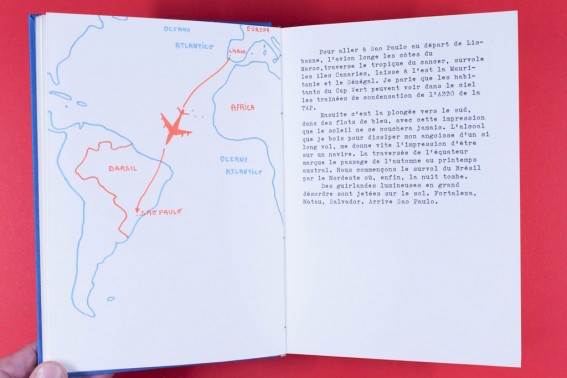 OCEANO
ATLANTICO
EUROPA
LISBOA
AFRICA
OCEANO
ATLANTICO
BRASIL
SAO PAULO
Pour aller à Sao Paulo au départ de Lis-
bonne, l'avion longe les côtes du
Maroc,traverse le tropique du cancer, survole
les îles Canaries, laisse à l'est la Mauri-
tanie et le Sénégal. Je parie que les habi-
tants du Cap Vert peuvent voir dans le ciel
les trainées de condensation de l'A330 de la
TAP.
Ensuite c'est la plongée vers le sud,
dans des flots de bleu, avec cette impression
que le soleil ne se couchera jamais. L'alcool
que je bois pour dissiper mon angoisse d'un si
long vol, me donne vite l'impression d'être
sur un navire. La traversée de l'équateur
marque le passage de l'automne au printemps
austral. Nous commençons le survol du Brésil
par le Nordeste où, enfin, la nuit tombe.
Des guirlandes lumineuses en grand
désordre sont jetées sur le sol. Fortaleza,
Natau, Salvador. Arrive Sao Paulo.